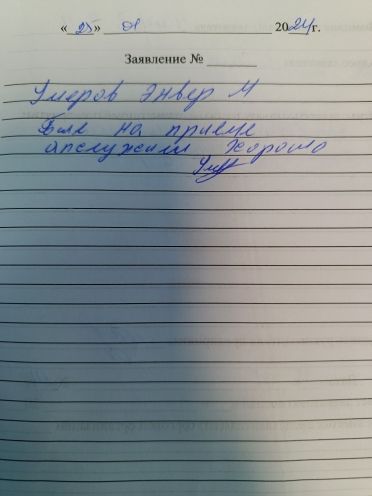 « 25 » 01 2024 г.
Заявление №
Умеров Энвер М
Был на приеме
апслужили хорошо